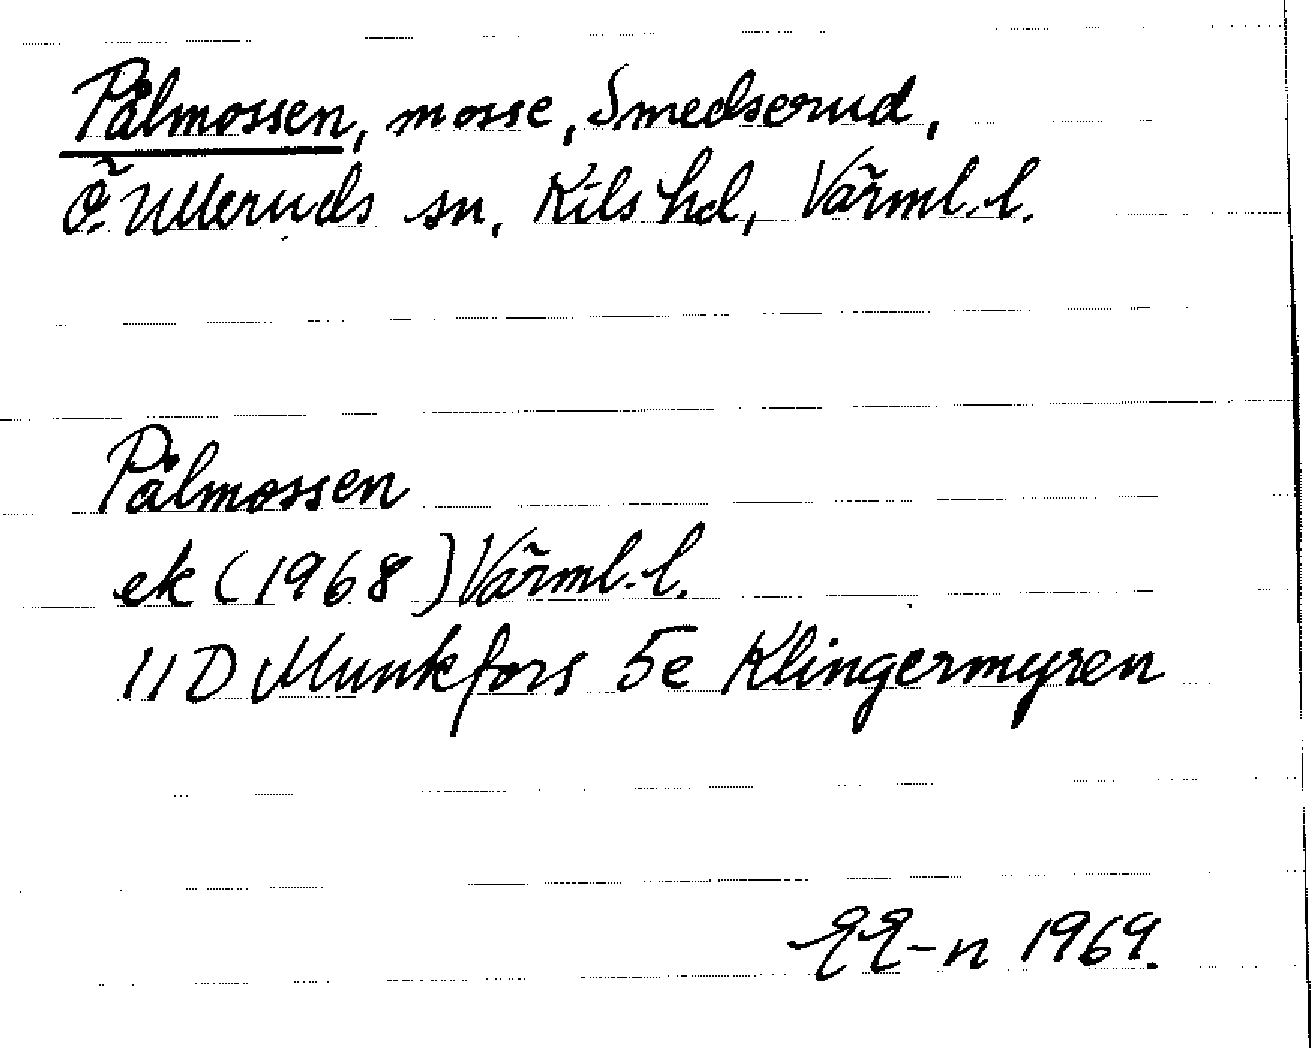 Pålmossen, mosse, Smedserud,
Ö. Ulleruds sn, Kils hd, Värml. l.
Pålmossen
ek (1968) Värml. l.
11D Munkfors 5e Klingermyren
EE-n 1969.